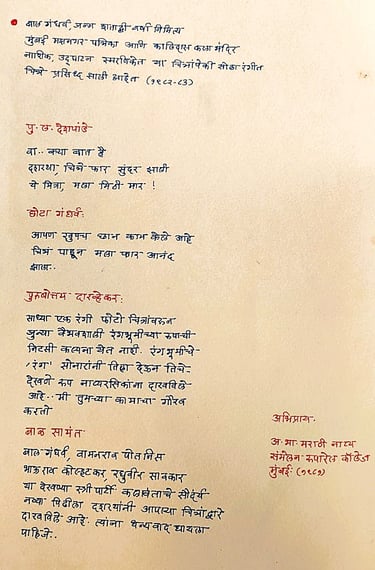 बाल गंधर्व, जन्म शताब्दी वर्षा निमित्त
मुंबई महानगर पत्रिका आणि कालिदास कला मंदिर
नाशिक, उद्घाटन स्मरणिकेत या चित्रांपैकी सोळा रंगीत
चित्रे प्रसिध्द झाली आहेत (१९८२-८३)
पु. ल. देशपांडे
वा.. क्या बात है
दशरथा, चित्रे फार सुंदर झाली
ये मित्रा, मला मिठी मार !
छोटा गंधर्व:
आपण खुपच छान काम केले आहे
चित्रं पाहून मला फार आनंद
झाला..
पुरुषोत्तम दारव्हेकर:
साध्या एक रंगी फोटो चित्रांवरून
जुन्या वैभवशाली रंगभूमीच्या रूपाची
नीटशी कल्पना येत नाही. रंगभूमीचे-
'रंग' सोनारांनी तिला देऊन तिचे-
देखणे रूप नाट्यरसिकांना दाखविले
आहे.. मी तुमच्या कामाचा गौरव
करतो
बाळ सामंत
बाल गंधर्व, वामनराव पोतनिस
भाऊराव कोल्हटकर, रघुवीर सावकार
या देखण्या स्त्रीपार्टी कलावंताचे सौंदर्य
नव्या पिढीला दशरथांनी आपल्या चित्राद्वारे
दाखविले आहे. त्यांना धन्यवाद द्यायला
पाहिजे..
अभिप्राय:
अ. भा. मराठी नाट्य
संमेलन रुपारेल कॉलेज
मुंबई: (१९८७)